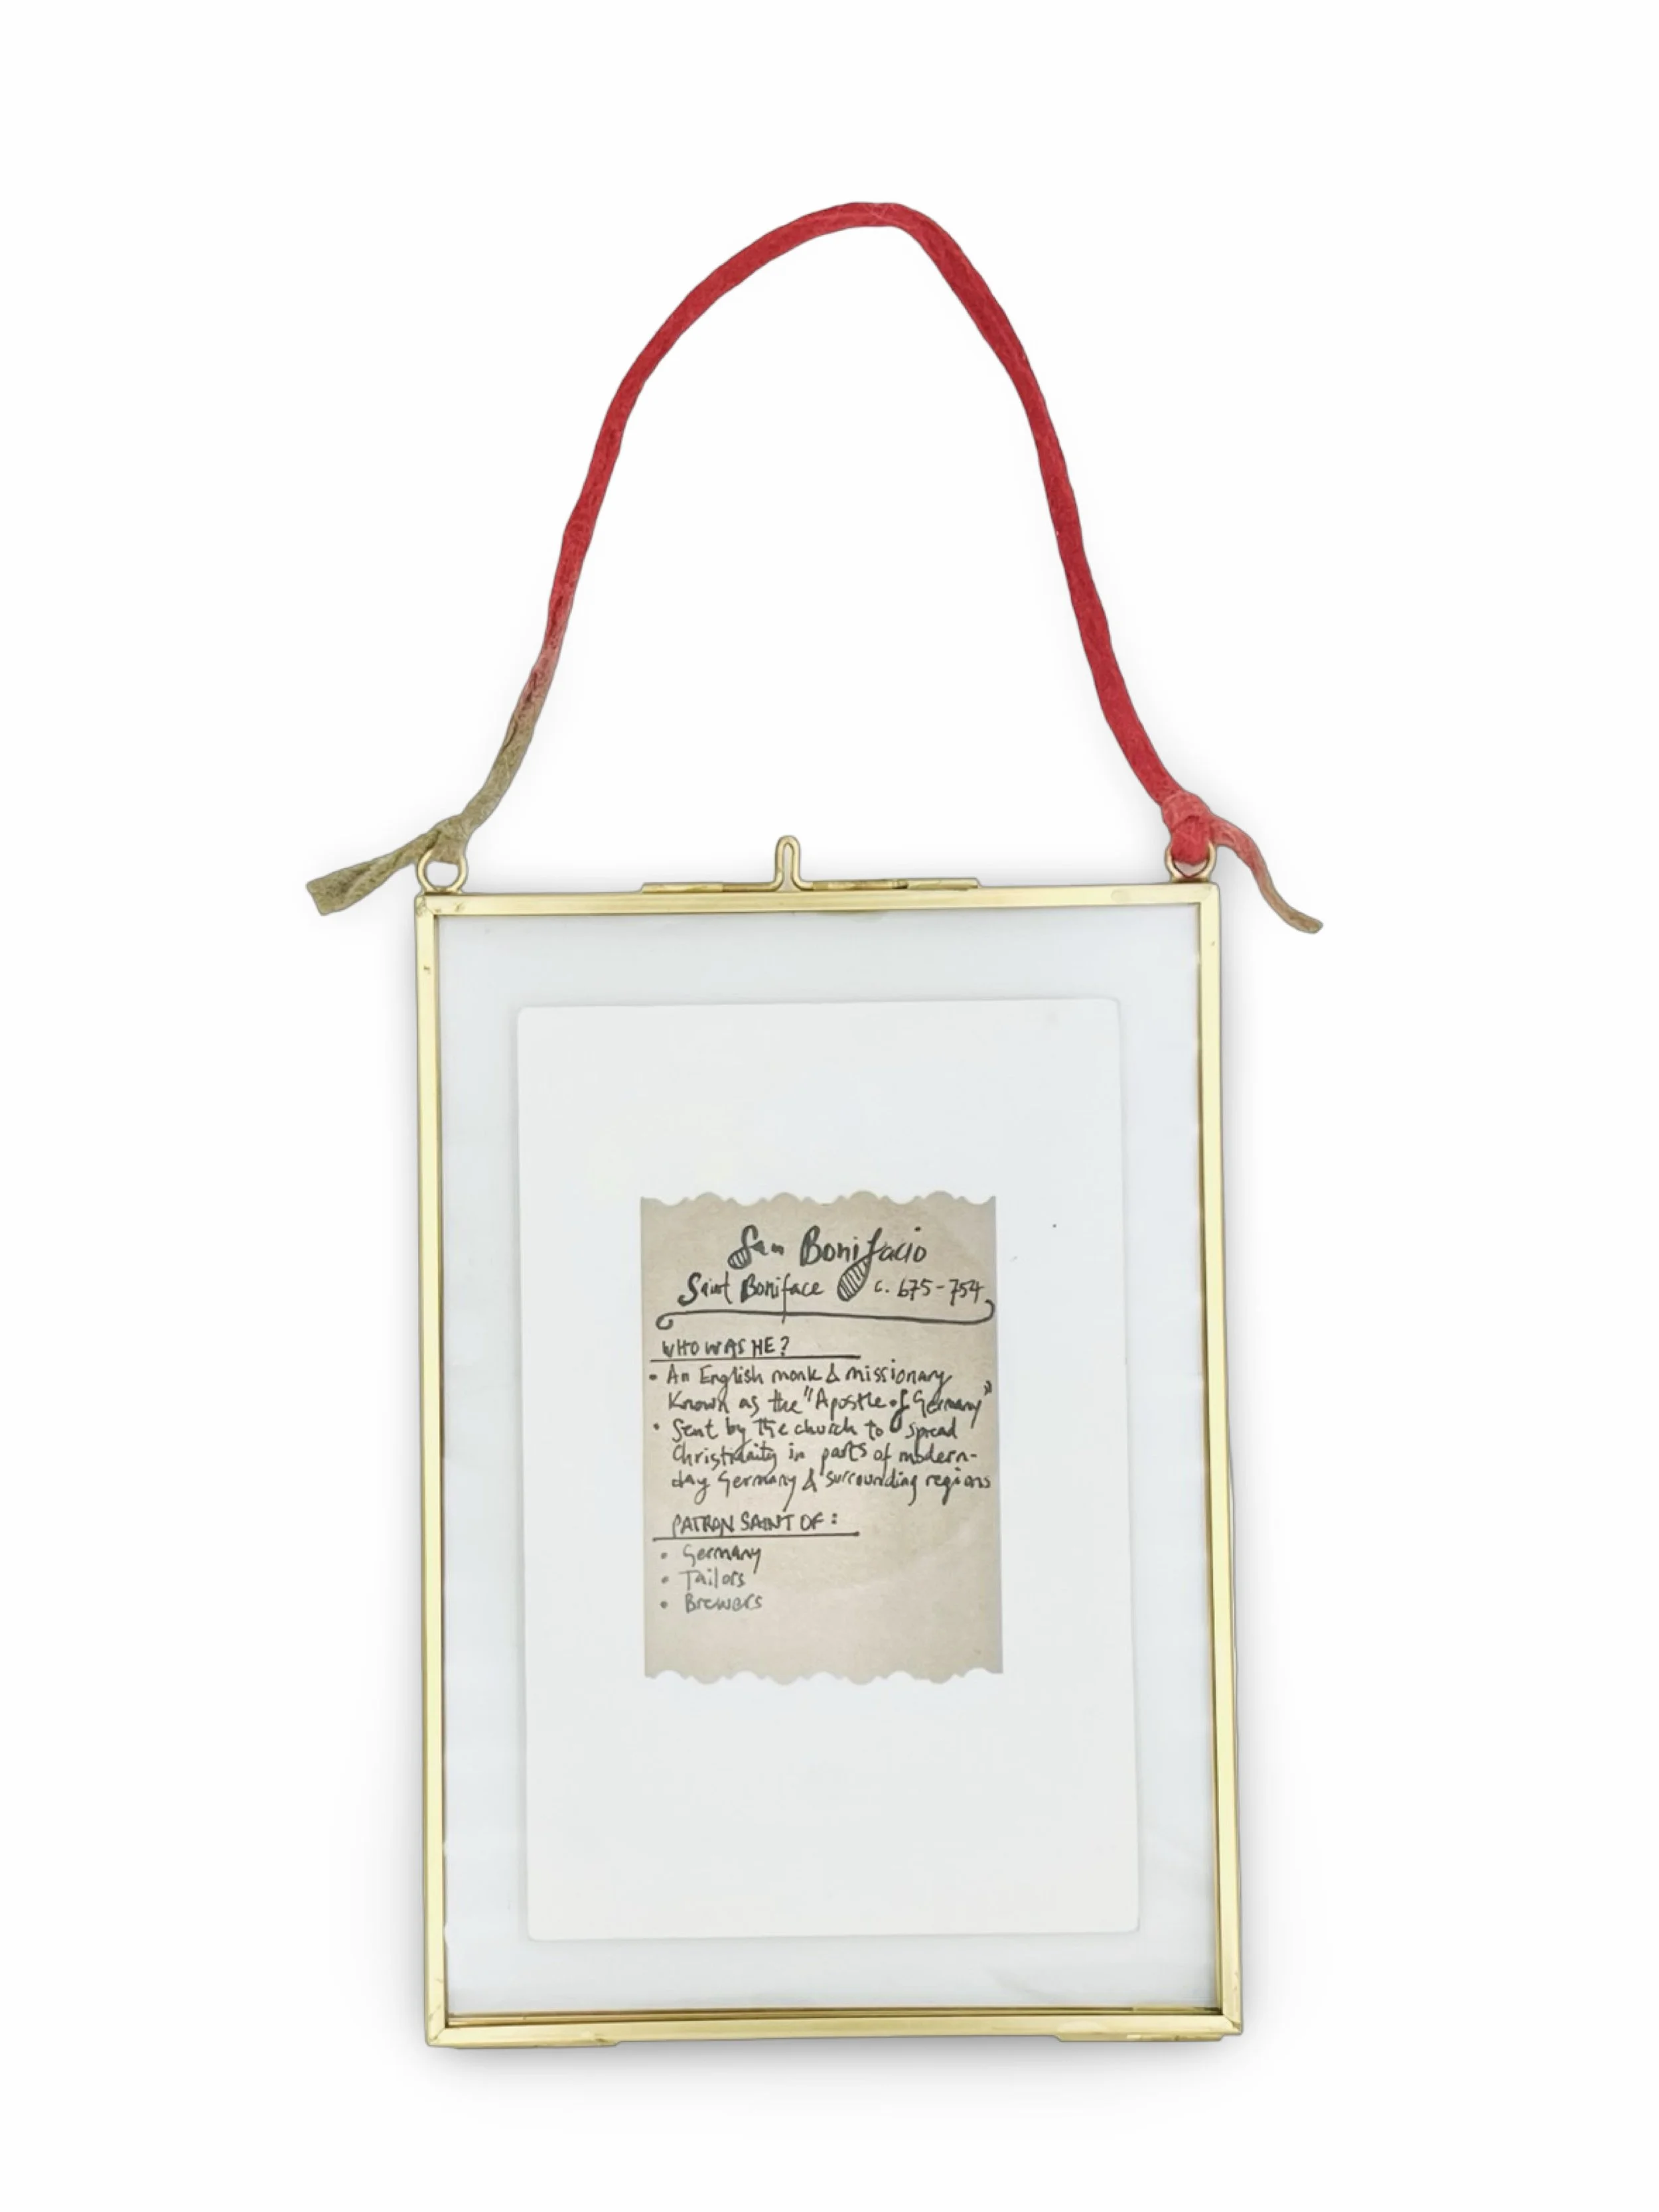 San Bonifacio
Saint Boniface c. 675-754
WHO WAS HE?
• An English monk & missionary
Known as the "Apostle of Germany"
• Sent by the church to spread
Christianity in parts of modern-
day Germany & surrounding regions
PATRON SAINT OF:
• Germany
• Tailors
• Brewers